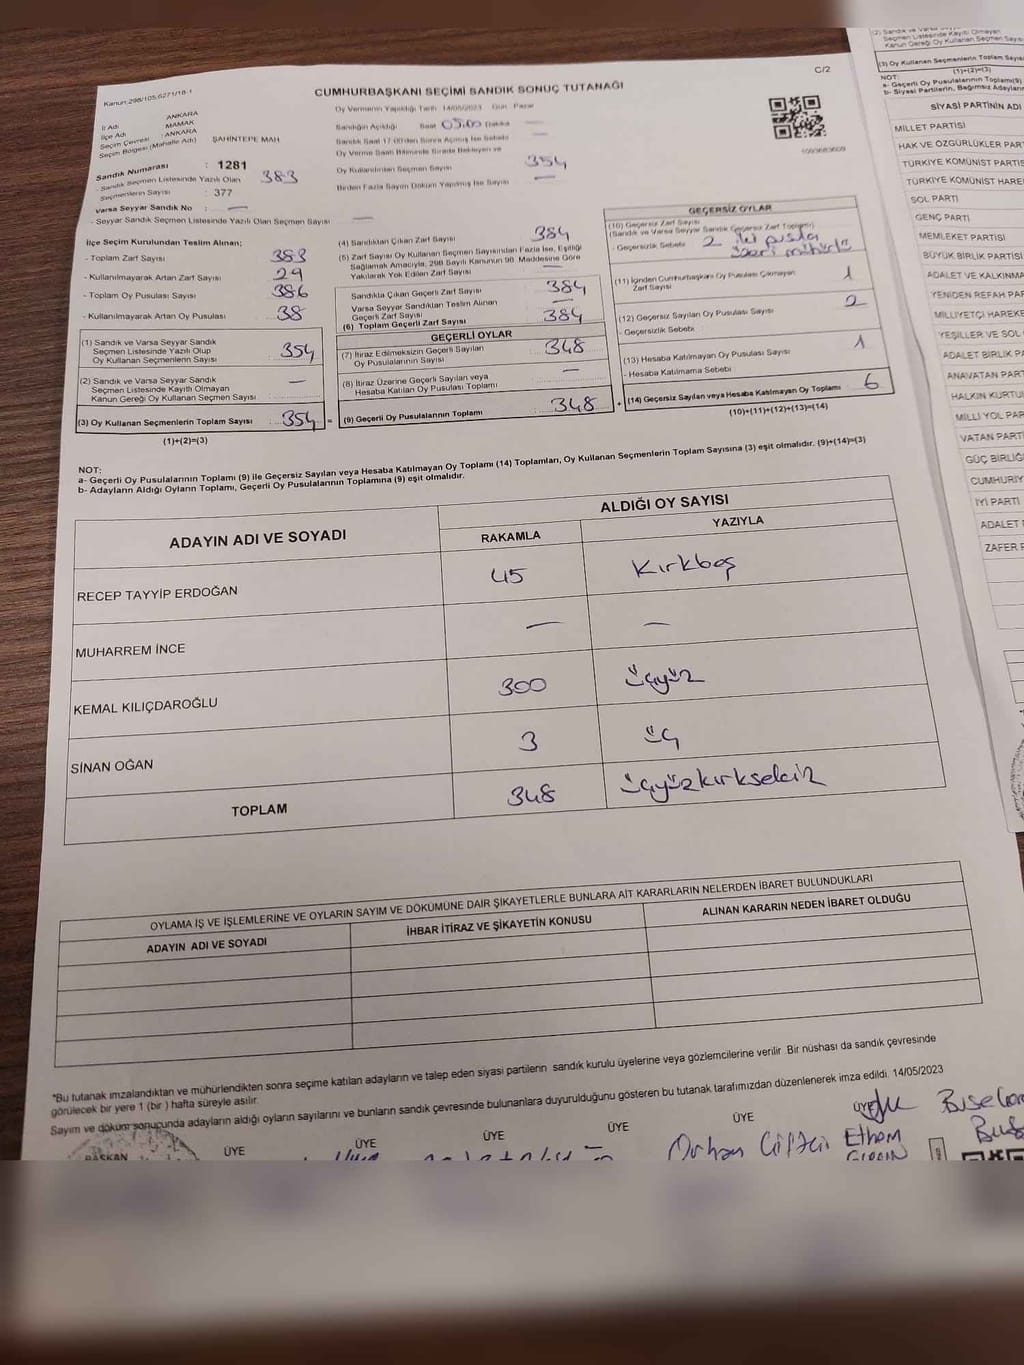 C/2
Kanun:298/105,6271/18-1
CUMHURBAŞKANI SEÇİMİ SANDIK SONUÇ TUTANAĞI
İl Adı : ANKARA
İlçe Adı : MAMAK
Seçim Çevresi : ANKARA
Seçim Bölgesi (Mahalle Adı) ŞAHİNTEPE MAH
Sandık Numarası : 1281
- Sandık Seçmen Listesinde Yazılı Olan
Seçmenlerin Sayısı : 377 383
Varsa Seyyar Sandık No : —
- Seyyar Sandık Seçmen Listesinde Yazılı Olan Seçmen Sayısı —
Oy Vermenin Yapıldığı Tarih 14/05/2023 Gün Pazar
Sandığın Açıldığı Saat 05:00 Dakika —
Sandık Saat 17:00'den Sonra Açılmış İse Sebebi —
Oy Verme Saati Bitiminde Sırada Bekleyen ve
Oy Kullandırılan Seçmen Sayısı 354
Birden Fazla Sayım Döküm Yapılmış İse Sayısı —
1003683609
İlçe Seçim Kurulundan Teslim Alınan;
- Toplam Zarf Sayısı : 383
- Kullanılmayarak Artan Zarf Sayısı : 29
- Toplam Oy Pusulası Sayısı : 386
- Kullanılmayarak Artan Oy Pusulası : 38
(1) Sandık ve Varsa Seyyar Sandık
Seçmen Listesinde Yazılı Olup
Oy Kullanan Seçmenlerin Sayısı : 354
(2) Sandık ve Varsa Seyyar Sandık
Seçmen Listesinde Kayıtlı Olmayan
Kanun Gereği Oy Kullanan Seçmen Sayısı : —
(3) Oy Kullanan Seçmenlerin Toplam Sayısı : 354 =
(1)+(2)=(3)
(4) Sandıktan Çıkan Zarf Sayısı 384
(5) Zarf Sayısı Oy Kullanan Seçmen Sayısından Fazla İse, Eşitliği
Sağlamak Amacıyla, 298 Sayılı Kanunun 98. Maddesine Göre
Yakılarak Yok Edilen Zarf Sayısı —
Sandıkta Çıkan Geçerli Zarf Sayısı 384
Varsa Seyyar Sandıktan Teslim Alınan
Geçerli Zarf Sayısı —
(6) Toplam Geçerli Zarf Sayısı 384
GEÇERLİ OYLAR
(7) İtiraz Edilmeksizin Geçerli Sayılan
Oy Pusulalarının Sayısı 348
(8) İtiraz Üzerine Geçerli Sayılan veya
Hesaba Katılan Oy Pusulası Toplamı —
(9) Geçerli Oy Pusulalarının Toplamı 348 +
GEÇERSİZ OYLAR
(10) Geçersiz Zarf Sayısı
(Sandık ve Varsa Seyyar Sandık Geçersiz Zarf Toplamı)
- Geçersizlik Sebebi : 2 iki pusula
üzeri mühürlü
(11) İçinden Cumhurbaşkanı Oy Pusulası Çıkmayan
Zarf Sayısı 1
(12) Geçersiz Sayılan Oy Pusulası Sayısı 2
- Geçersizlik Sebebi :
(13) Hesaba Katılmayan Oy Pusulası Sayısı 1
- Hesaba Katılmama Sebebi
(14) Geçersiz Sayılan veya Hesaba Katılmayan Oy Toplamı 6
(10)+(11)+(12)+(13)=(14)
NOT:
a- Geçerli Oy Pusulalarının Toplamı (9) ile Geçersiz Sayılan veya Hesaba Katılmayan Oy Toplamı (14) Toplamları, Oy Kullanan Seçmenlerin Toplam Sayısına (3) eşit olmalıdır. (9)+(14)=(3)
b- Adayların Aldığı Oyların Toplamı, Geçerli Oy Pusulalarının Toplamına (9) eşit olmalıdır.
ADAYIN ADI VE SOYADI
ALDIĞI OY SAYISI
RAKAMLA YAZIYLA
RECEP TAYYİP ERDOĞAN 45 Kırkbeş
MUHARREM İNCE — —
KEMAL KILIÇDAROĞLU 300 üçyüz
SİNAN OĞAN 3 üç
TOPLAM 348 üçyüzkırksekiz
OYLAMA İŞ VE İŞLEMLERİNE VE OYLARIN SAYIM VE DÖKÜMÜNE DAİR ŞİKAYETLERLE BUNLARA AİT KARARLARIN NELERDEN İBARET BULUNDUKLARI
ADAYIN ADI VE SOYADI İHBAR İTİRAZ VE ŞİKAYETİN KONUSU ALINAN KARARIN NEDEN İBARET OLDUĞU
*Bu tutanak imzalandıktan ve mühürlendikten sonra seçime katılan adayların ve talep eden siyasi partilerin sandık kurulu üyelerine veya gözlemcilerine verilir. Bir nüshası da sandık çevresinde
görülecek bir yere 1 (bir ) hafta süreyle asılır.
Sayım ve döküm sonucunda adayların aldığı oyların sayılarını ve bunların sandık çevresinde bulunanlara duyurulduğunu gösteren bu tutanak tarafımızdan düzenlenerek imza edildi. 14/05/2023
BAŞKAN ÜYE ÜYE ÜYE ÜYE ÜYE ÜYE
Orhan Çiftçi Ethem
(2) Sandık ve Varsa Seyyar
Seçmen Listesinde Kayıtlı Olmayan
Kanun Gereği Oy Kullanan Seçmen Sayıs
(3) Oy Kullanan Seçmenlerin Toplam Sayıs
(1)+(2)=(3)
NOT:
a- Geçerli Oy Pusulalarının Toplamı(9)
b- Siyasi Partilerin, Bağımsız Adayların
SİYASİ PARTİNİN ADI
MİLLET PARTİSİ
HAK VE ÖZGÜRLÜKLER PAR
TÜRKİYE KOMÜNİST PARTİS
TÜRKİYE KOMÜNİST HAREK
SOL PARTİ
GENÇ PARTİ
MEMLEKET PARTİSİ
BÜYÜK BİRLİK PARTİSİ
ADALET VE KALKINMA
YENİDEN REFAH PAR
MİLLİYETÇİ HAREKE
YEŞİLLER VE SOL
ADALET BİRLİK P
ANAVATAN PART
HALKIN KURTU
MİLLİ YOL PAR
VATAN PARTİ
GÜÇ BİRLİĞİ
CUMHURİY
İYİ PARTİ
ADALET
ZAFER P